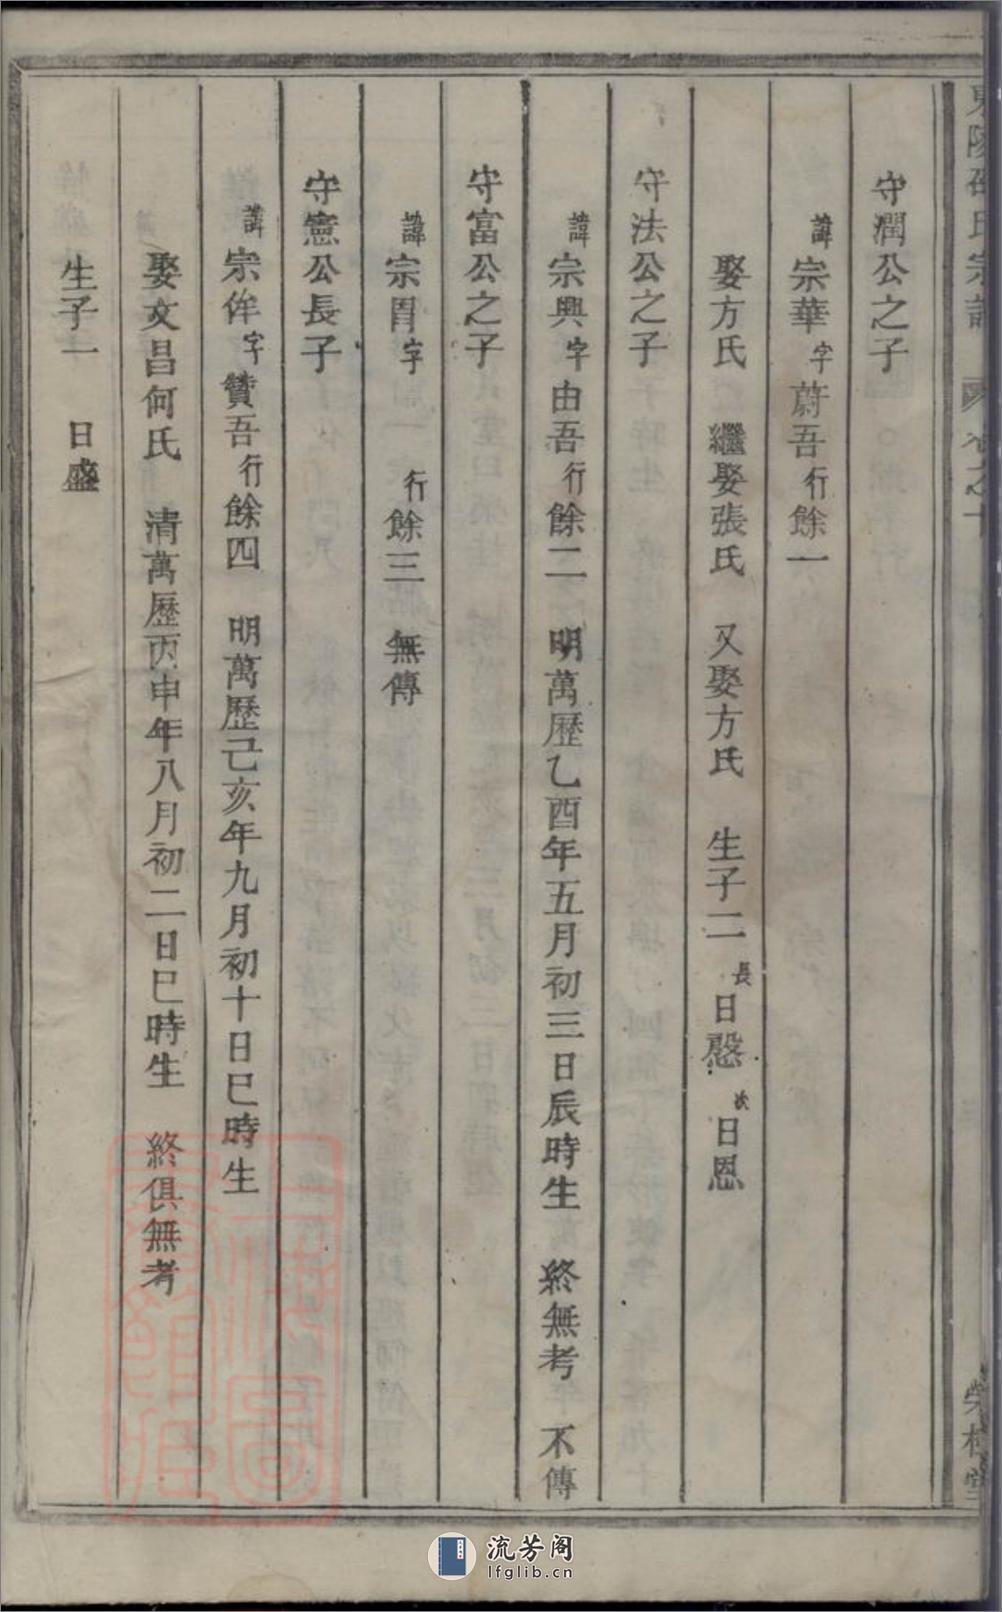 守潤公之子
諱宗華字蔚吾行餘一
娶方氏 繼娶張氏 又娶方氏 生子二 長日慇 次日恩
守法公之子
諱宗興字由吾行餘二 明萬歷乙酉年五月初三日辰時生 終無考 不傳
守富公之子
諱宗胃字 行餘三 無傳
守憲公長子
諱宗侔字贊吾行餘四 明萬歷己亥年九月初十日巳時生
娶文昌何氏 清萬歷丙申年八月初二日巳時生 終俱無考
生子一 日盛
氏宗譜 卷之十
堂
上海圖書館藏
流芳阁
lfglib.cn